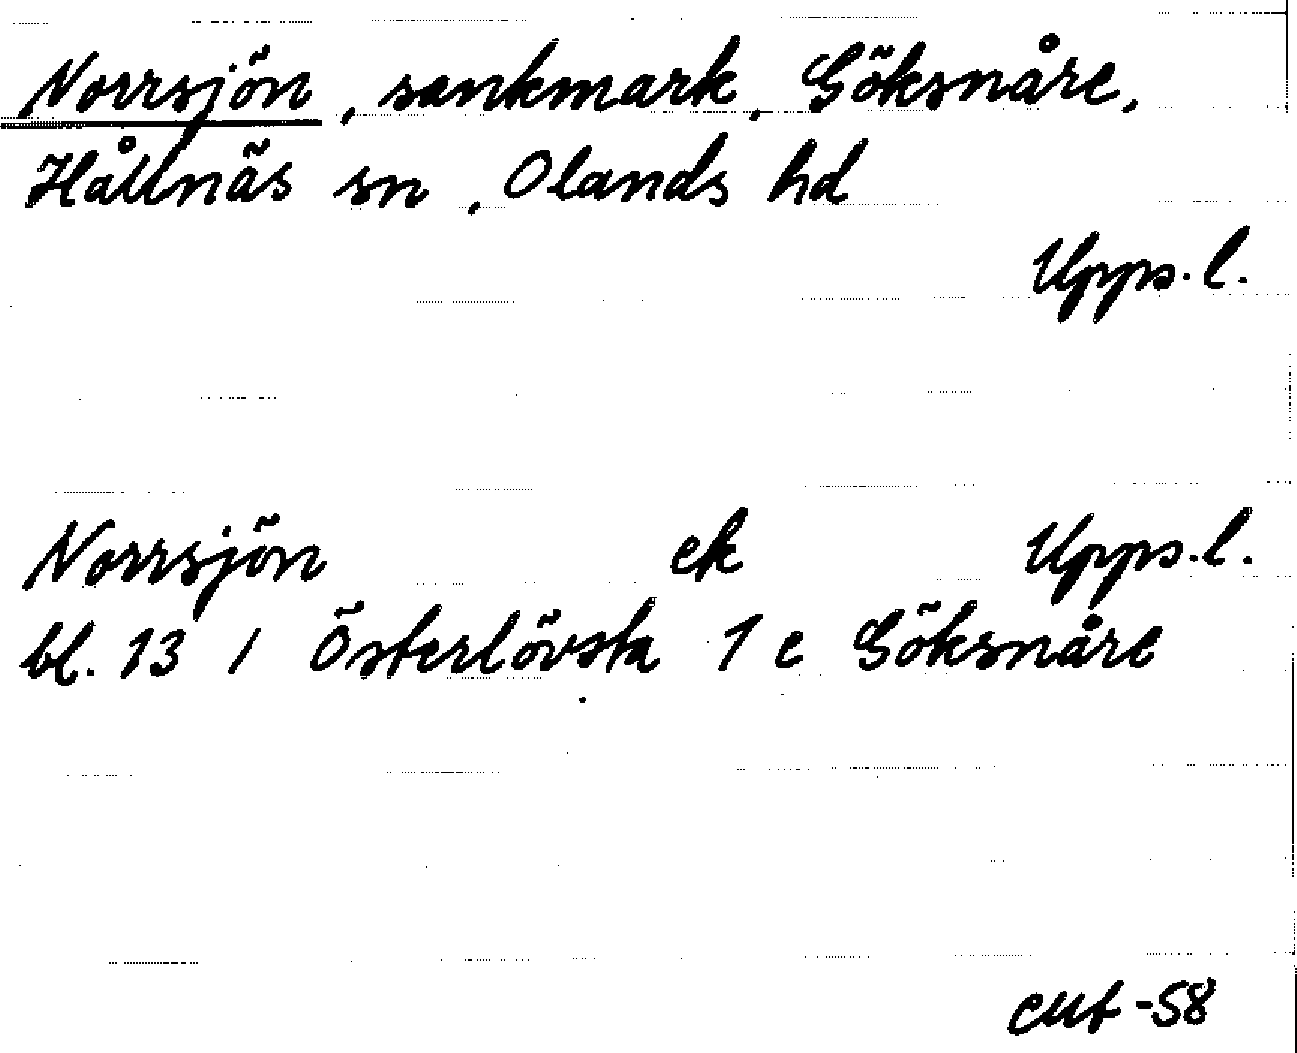 Norrsjön, sankmark, Göksnåre,
Hållnäs sn, Olands hd
Upps. l.
Norrsjön ek Upps. l.
bl. 13 / Österlövsta 1 e Göksnåre
-58